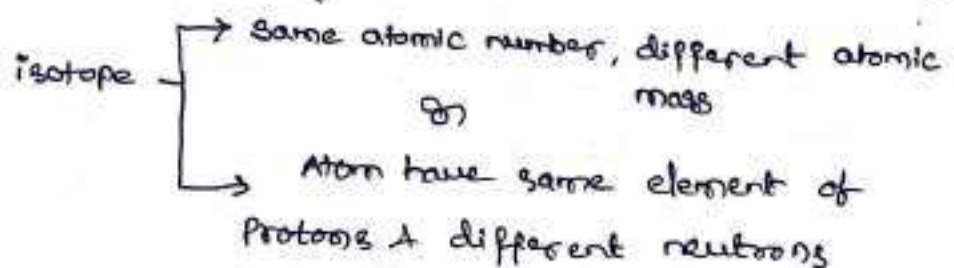 isotope → same atomic number, different atomic
mass
or
→ Atom have same element of
Protons & different neutrons